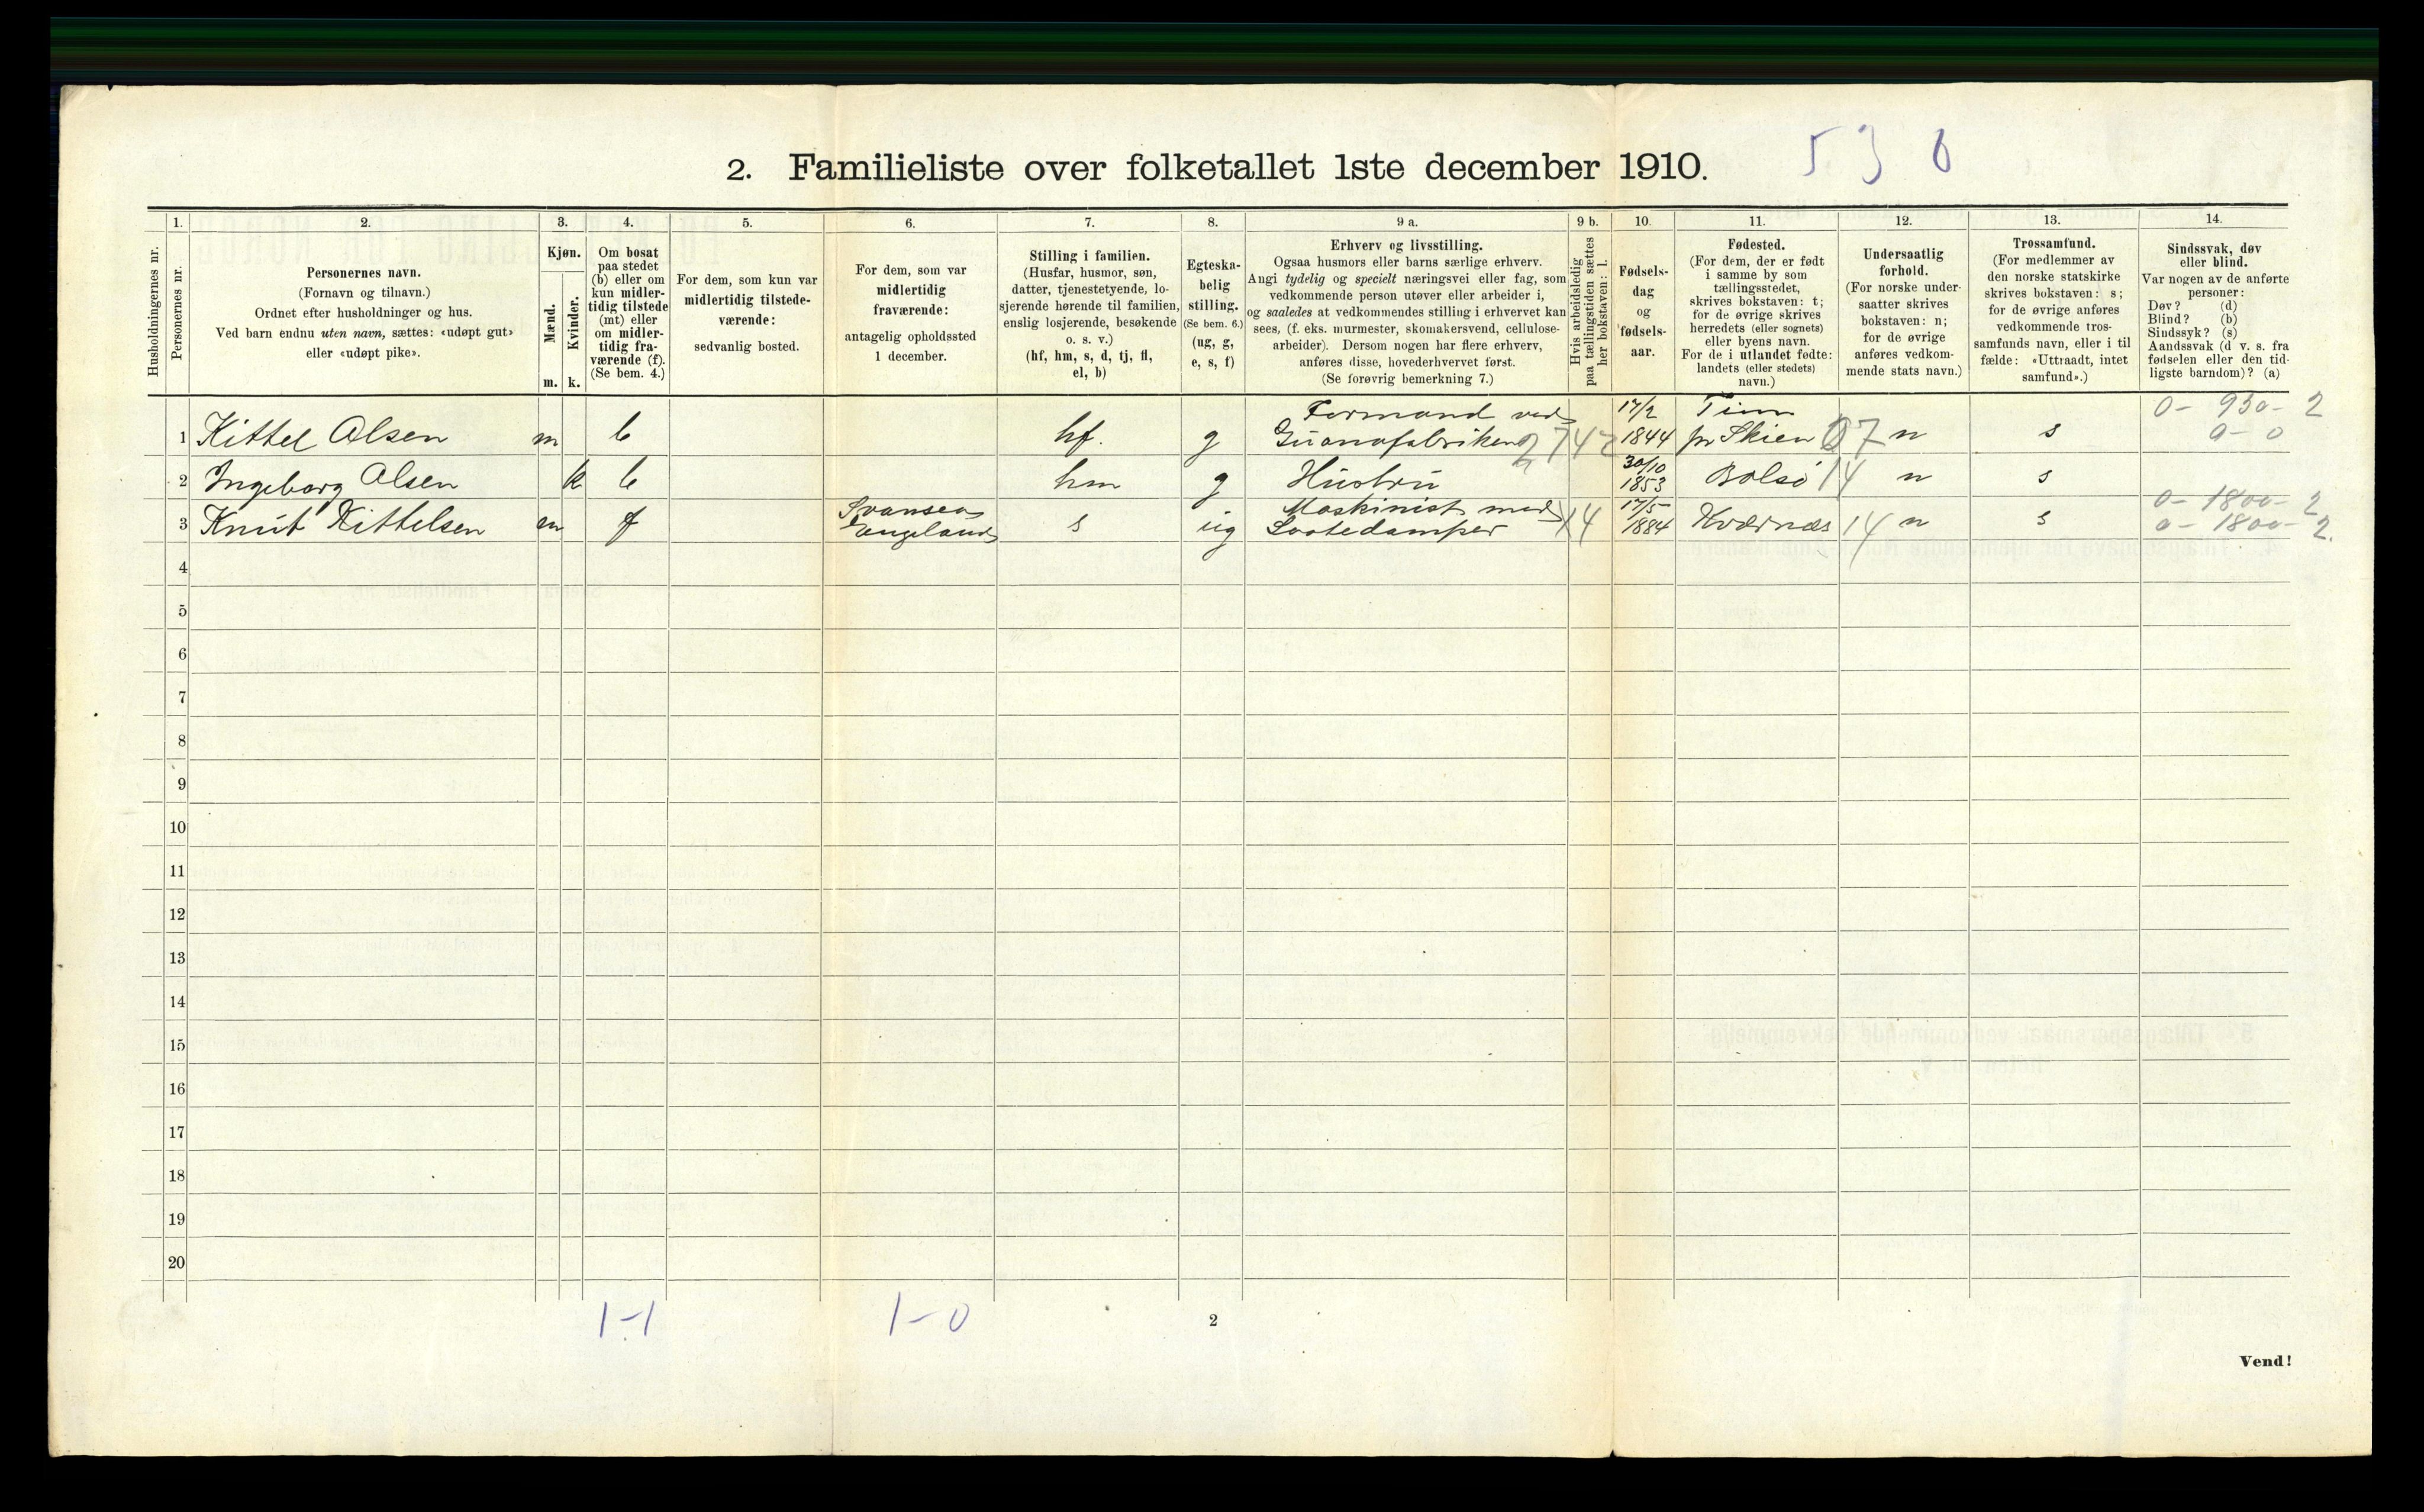 2. Familieliste over folketallet 1ste december 1910.
5 3 0
Husholdningernes nr.
1.
Personernes nr.
2.
Personernes navn.
(Fornavn og tilnavn.)
Ordnet efter husholdninger og hus.
Ved barn endnu uten navn, sættes: «udøpt gut»
eller «udøpt pike».
3.
Kjøn.
Mænd.
m.
Kvinder.
k.
4.
Om bosat
paa stedet
(b) eller om
kun midler-
tidig tilstede
(mt) eller
om midler-
tidig fra-
værende (f).
(Se bem. 4.)
5.
For dem, som kun var
midlertidig tilstede-
værende:
sedvanlig bosted.
6.
For dem, som var
midlertidig
fraværende:
antagelig opholdssted
1 december.
7.
Stilling i familien.
(Husfar, husmor, søn,
datter, tjenestetyende, lo-
sjerende hørende til familien,
enslig losjerende, besøkende
o. s. v.)
(hf, hm, s, d, tj, fl,
el, b)
8.
Egteska-
belig
stilling.
(Se bem. 6.)
(ug, g,
e, s, f)
9 a.
Erhverv og livsstilling.
Ogsaa husmors eller barns særlige erhverv.
Angi tydelig og specielt næringsvei eller fag, som
vedkommende person utøver eller arbeider i,
og saaledes at vedkommendes stilling i erhvervet kan
sees, (f. eks. murmester, skomakersvend, cellulose-
arbeider). Dersom nogen har flere erhverv,
anføres disse, hovederhvervet først.
(Se forøvrig bemerkning 7.)
9 b.
Hvis arbeidsledig
paa tællingstiden sættes
her bokstaven: l.
10.
Fødsels-
dag
og
fødsels-
aar.
11.
Fødested.
(For dem, der er født
i samme by som
tællingsstedet,
skrives bokstaven: t;
for de øvrige skrives
herredets (eller sognets)
eller byens navn.
For de i utlandet fødte:
landets (eller stedets)
navn.)
12.
Undersaatlig
forhold.
(For norske under-
saatter skrives
bokstaven: n;
for de øvrige
anføres vedkom-
mende stats navn.)
13.
Trossamfund.
(For medlemmer av
den norske statskirke
skrives bokstaven: s;
for de øvrige anføres
vedkommende tros-
samfunds navn, eller i til
fælde: «Uttraadt, intet
samfund».)
14.
Sindssvak, døv
eller blind.
Var nogen av de anførte
personer:
Døv? (d)
Blind? (b)
Sindssyk? (s)
Aandssvak (d. v. s. fra
fødselen eller den tid-
ligste barndom)? (a)
Formand ved 17/2 Tinn 0- 930- 2
1 Kittel Olsen m b hf. g Guanofabriken 2742 1844 pr Skien 07 n s 0- 0
30/10
2 Ingeborg Olsen k b hm g Hustru 1853 Bolsö 14 n s
Svansea Maskinist med 17/5 0- 1800- 2
3 Knut Kittelsen m f England s ug Lastedamper X4 1884 Kværnæs 14 n s 0- 1800- 2.
4
5
6
7
8
9
10
11
12
13
14
15
16
17
18
19
20
1-1 1-0
2
Vend!